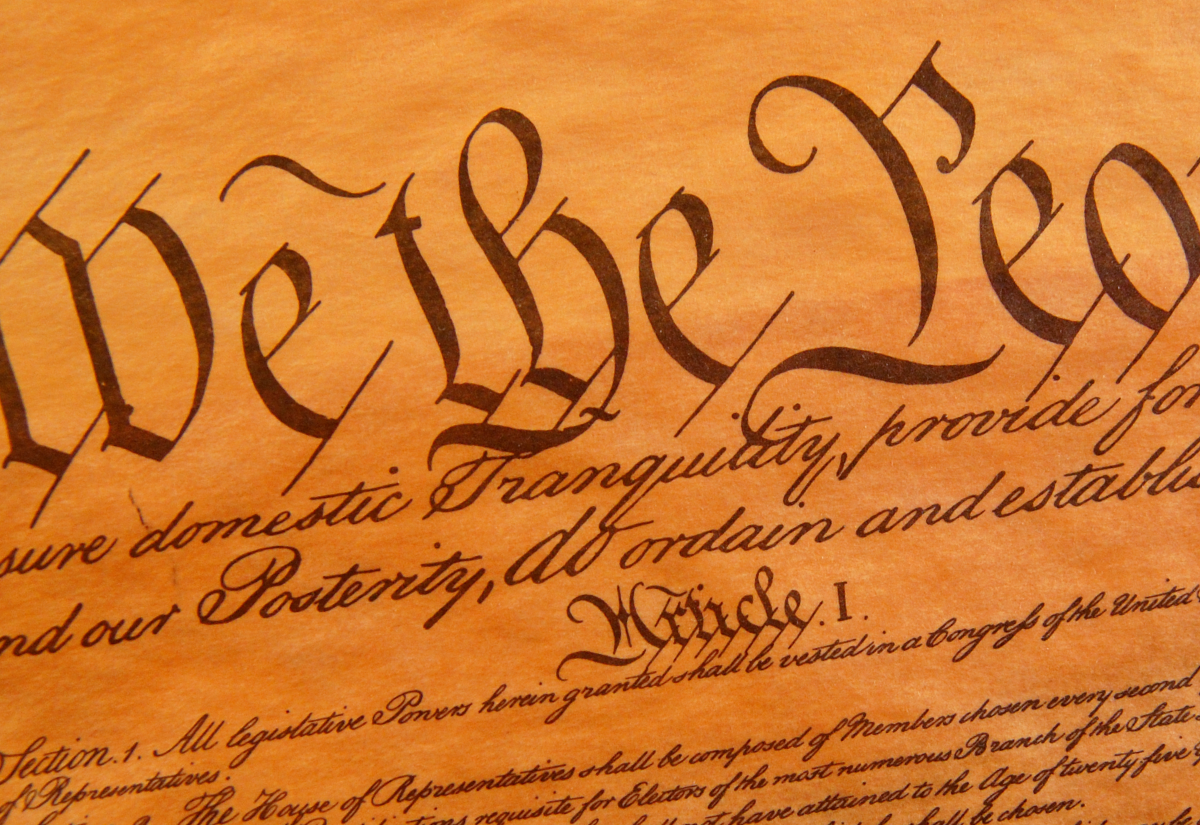 We the Peo
sure domestic Tranquility, provide for
nd our Posterity, do ordain and establis
Article. I.
Section. 1. All legislative Powers herein granted shall be vested in a Congress of the United
of Representatives.
The House of Representatives shall be composed of Members chosen every second
requisite for Electors of the most numerous Branch of the State
not have attained to the Age of twenty five
shall be chosen.